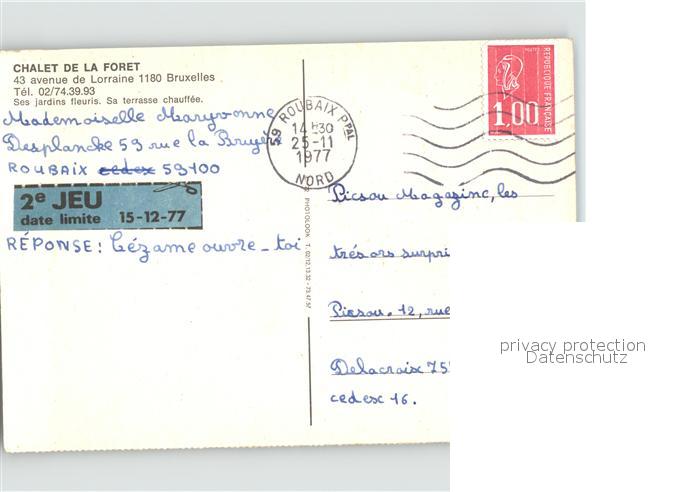 CHALET DE LA FORET
43 avenue de Lorraine 1180 Bruxelles
Tél. 02/74.39.93
Ses jardins fleuris. Sa terrasse chauffée.
Mademoiselle Maryvonne
Desplanche 59 rue la Bruyé
ROUBAIX cedex 59100
2e JEU
date limite 15-12-77
RÉPONSE: Cézame ouvre-toi
59 ROUBAIX PPAL
14H30
25-11
1977
NORD
POSTES
1,00
REPUBLIQUE FRANÇAISE
PHOTOLOOK T. 02/12.13.32 - 73.47.57
Picsou Magazine, les
trésors surpri
Picsou. 12, rue
Delacroix 75
cedex 16.
privacy protection
Datenschutz